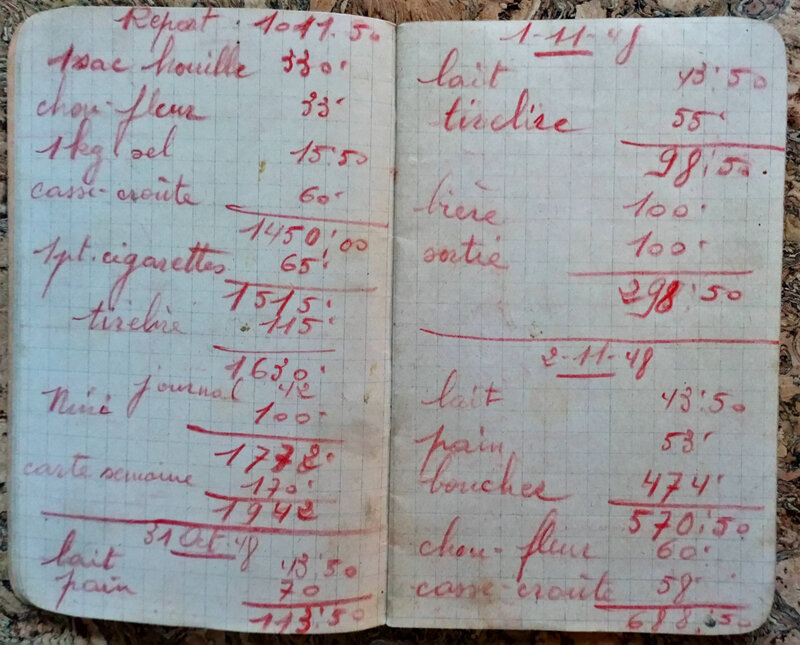 Report 1011.50
1 sac houille 330.
chou-fleur 33.
1 kg sel 15.50
casse-croûte 60.
1450.00
1 pt. cigarettes 65.
1515.
tirelire 115.
1630.
journal 42
Nini 100.
1772.
carte semaine 170.
1942
31 Oct. 48
lait 43.50
pain 70
113.50
1-11-48
lait 43.50
tirelire 55.
98.50
bière 100.
sortie 100.
298.50
2-11-48
lait 43.50
pain 53.
boucher 474.
570.50
chou-fleur 60.
casse-croûte 58.
688.50